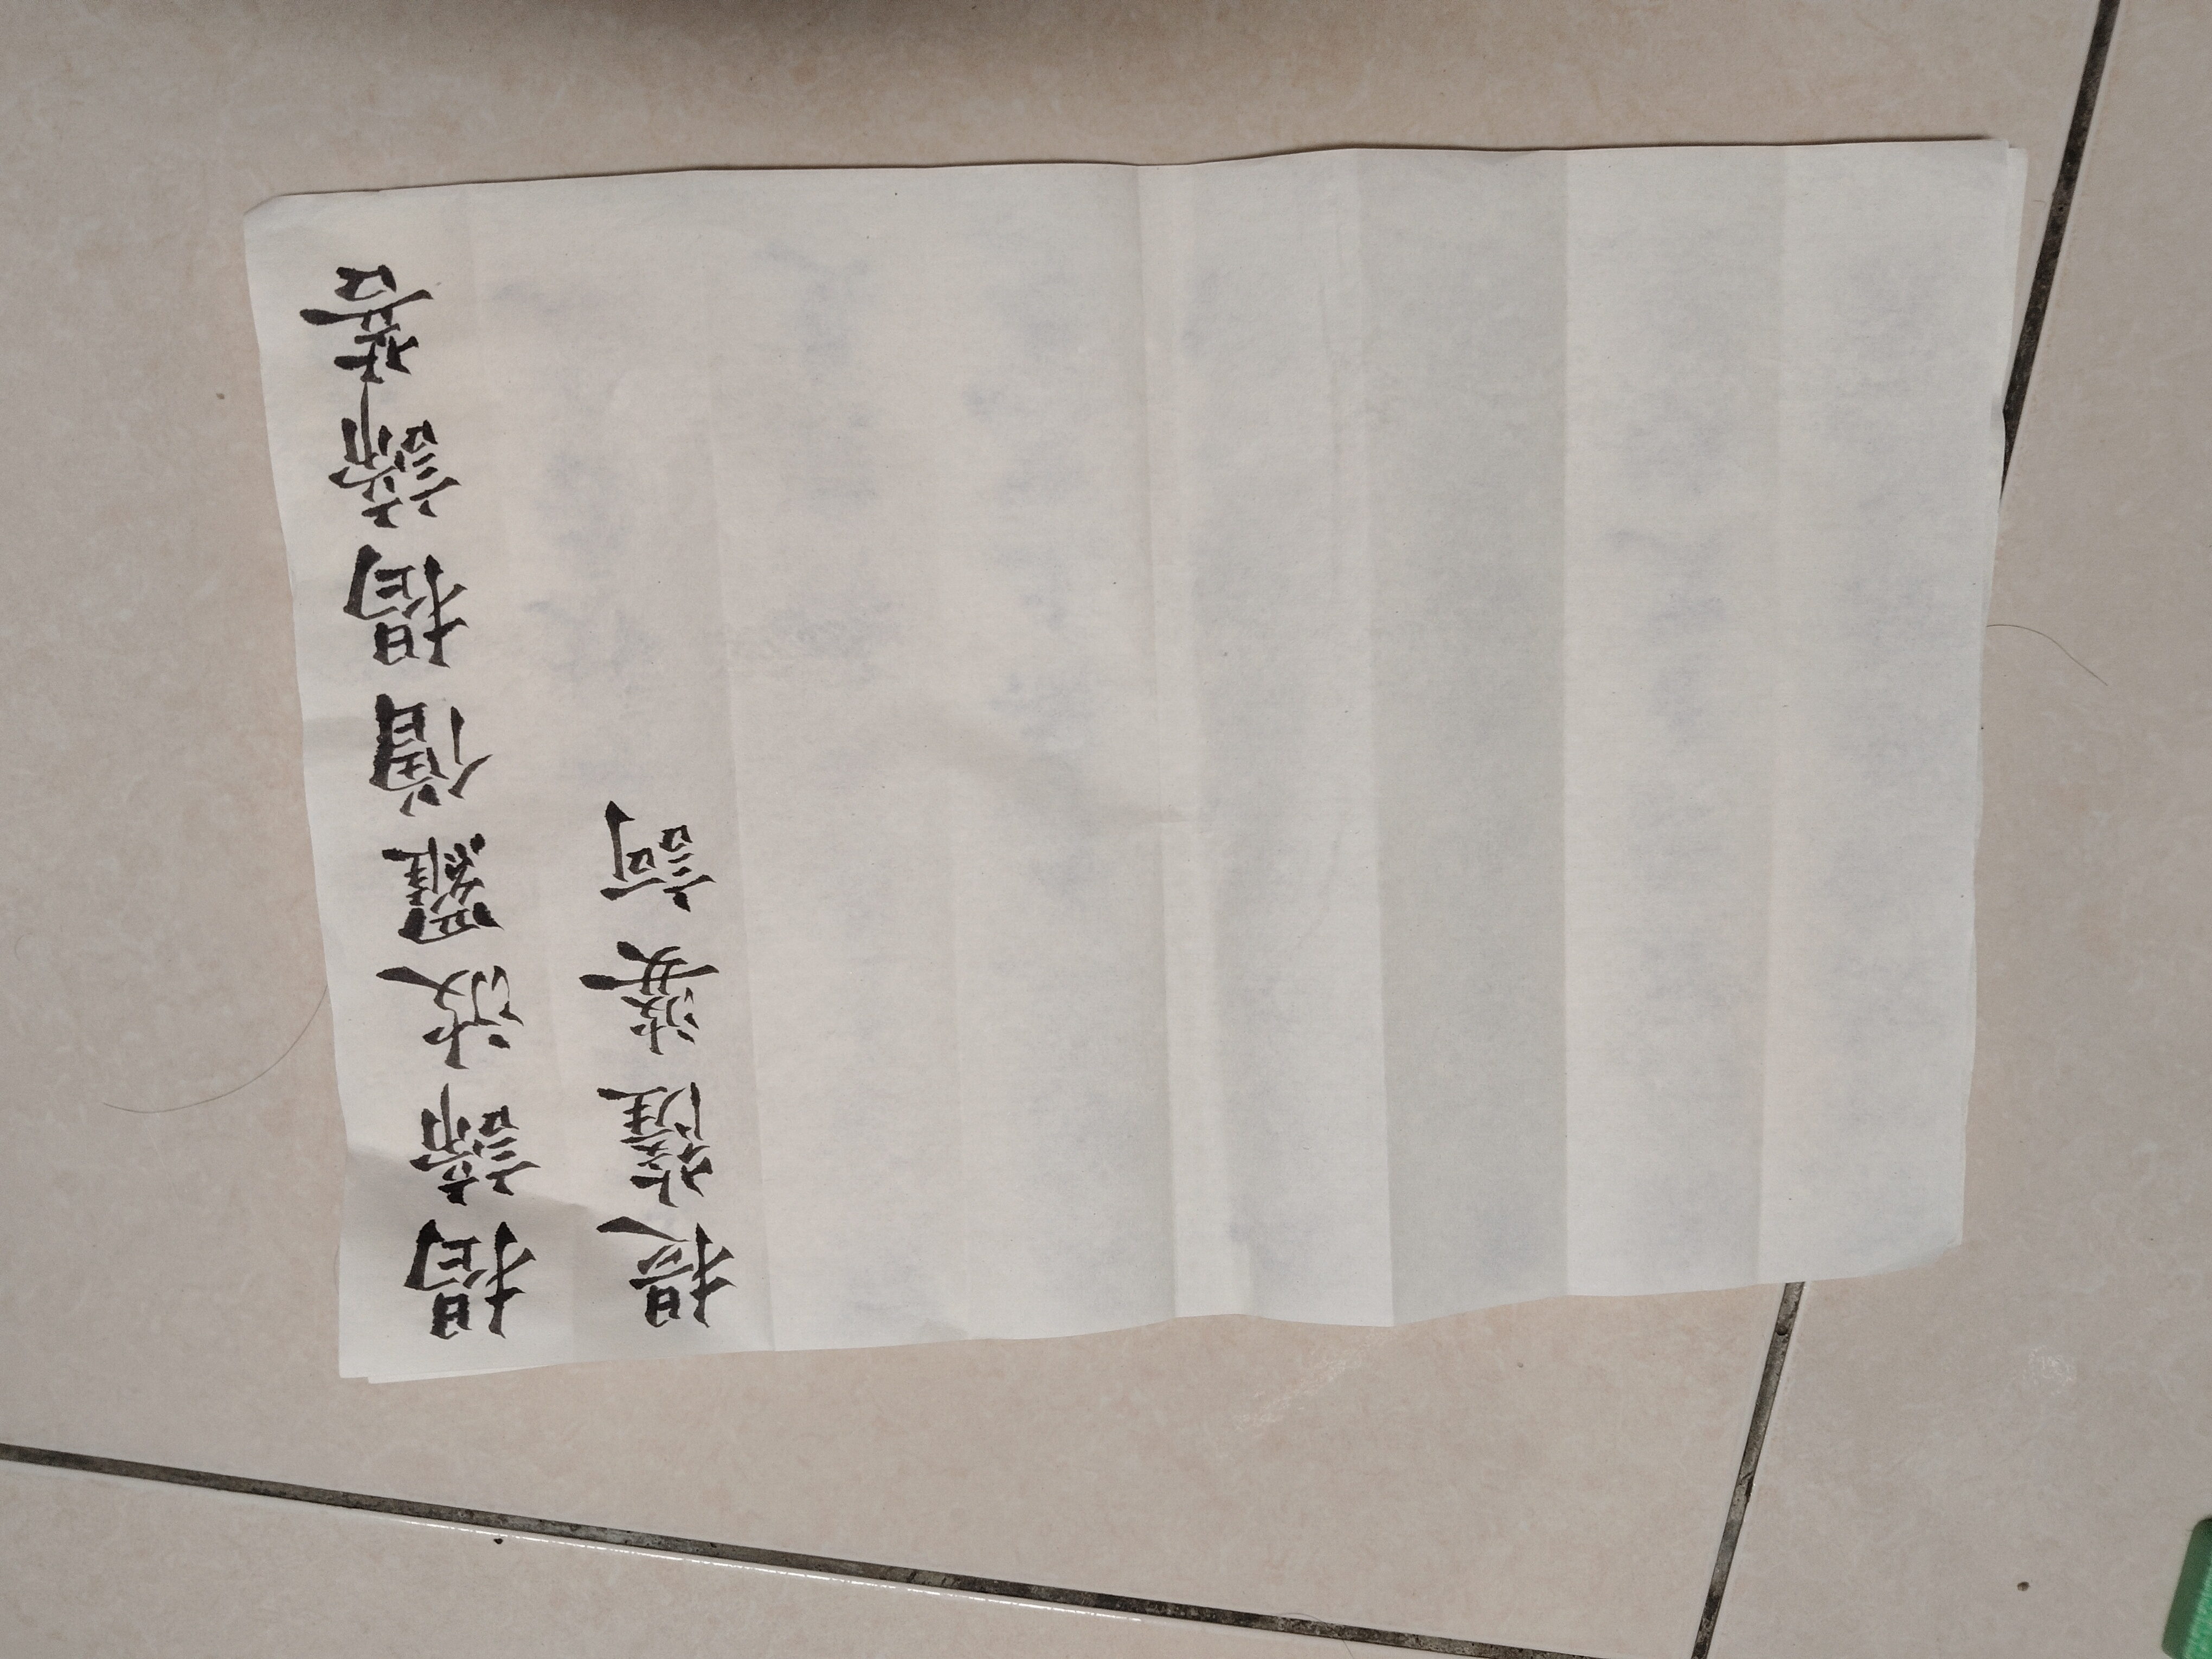 揭諦波羅僧揭諦菩
提薩婆訶